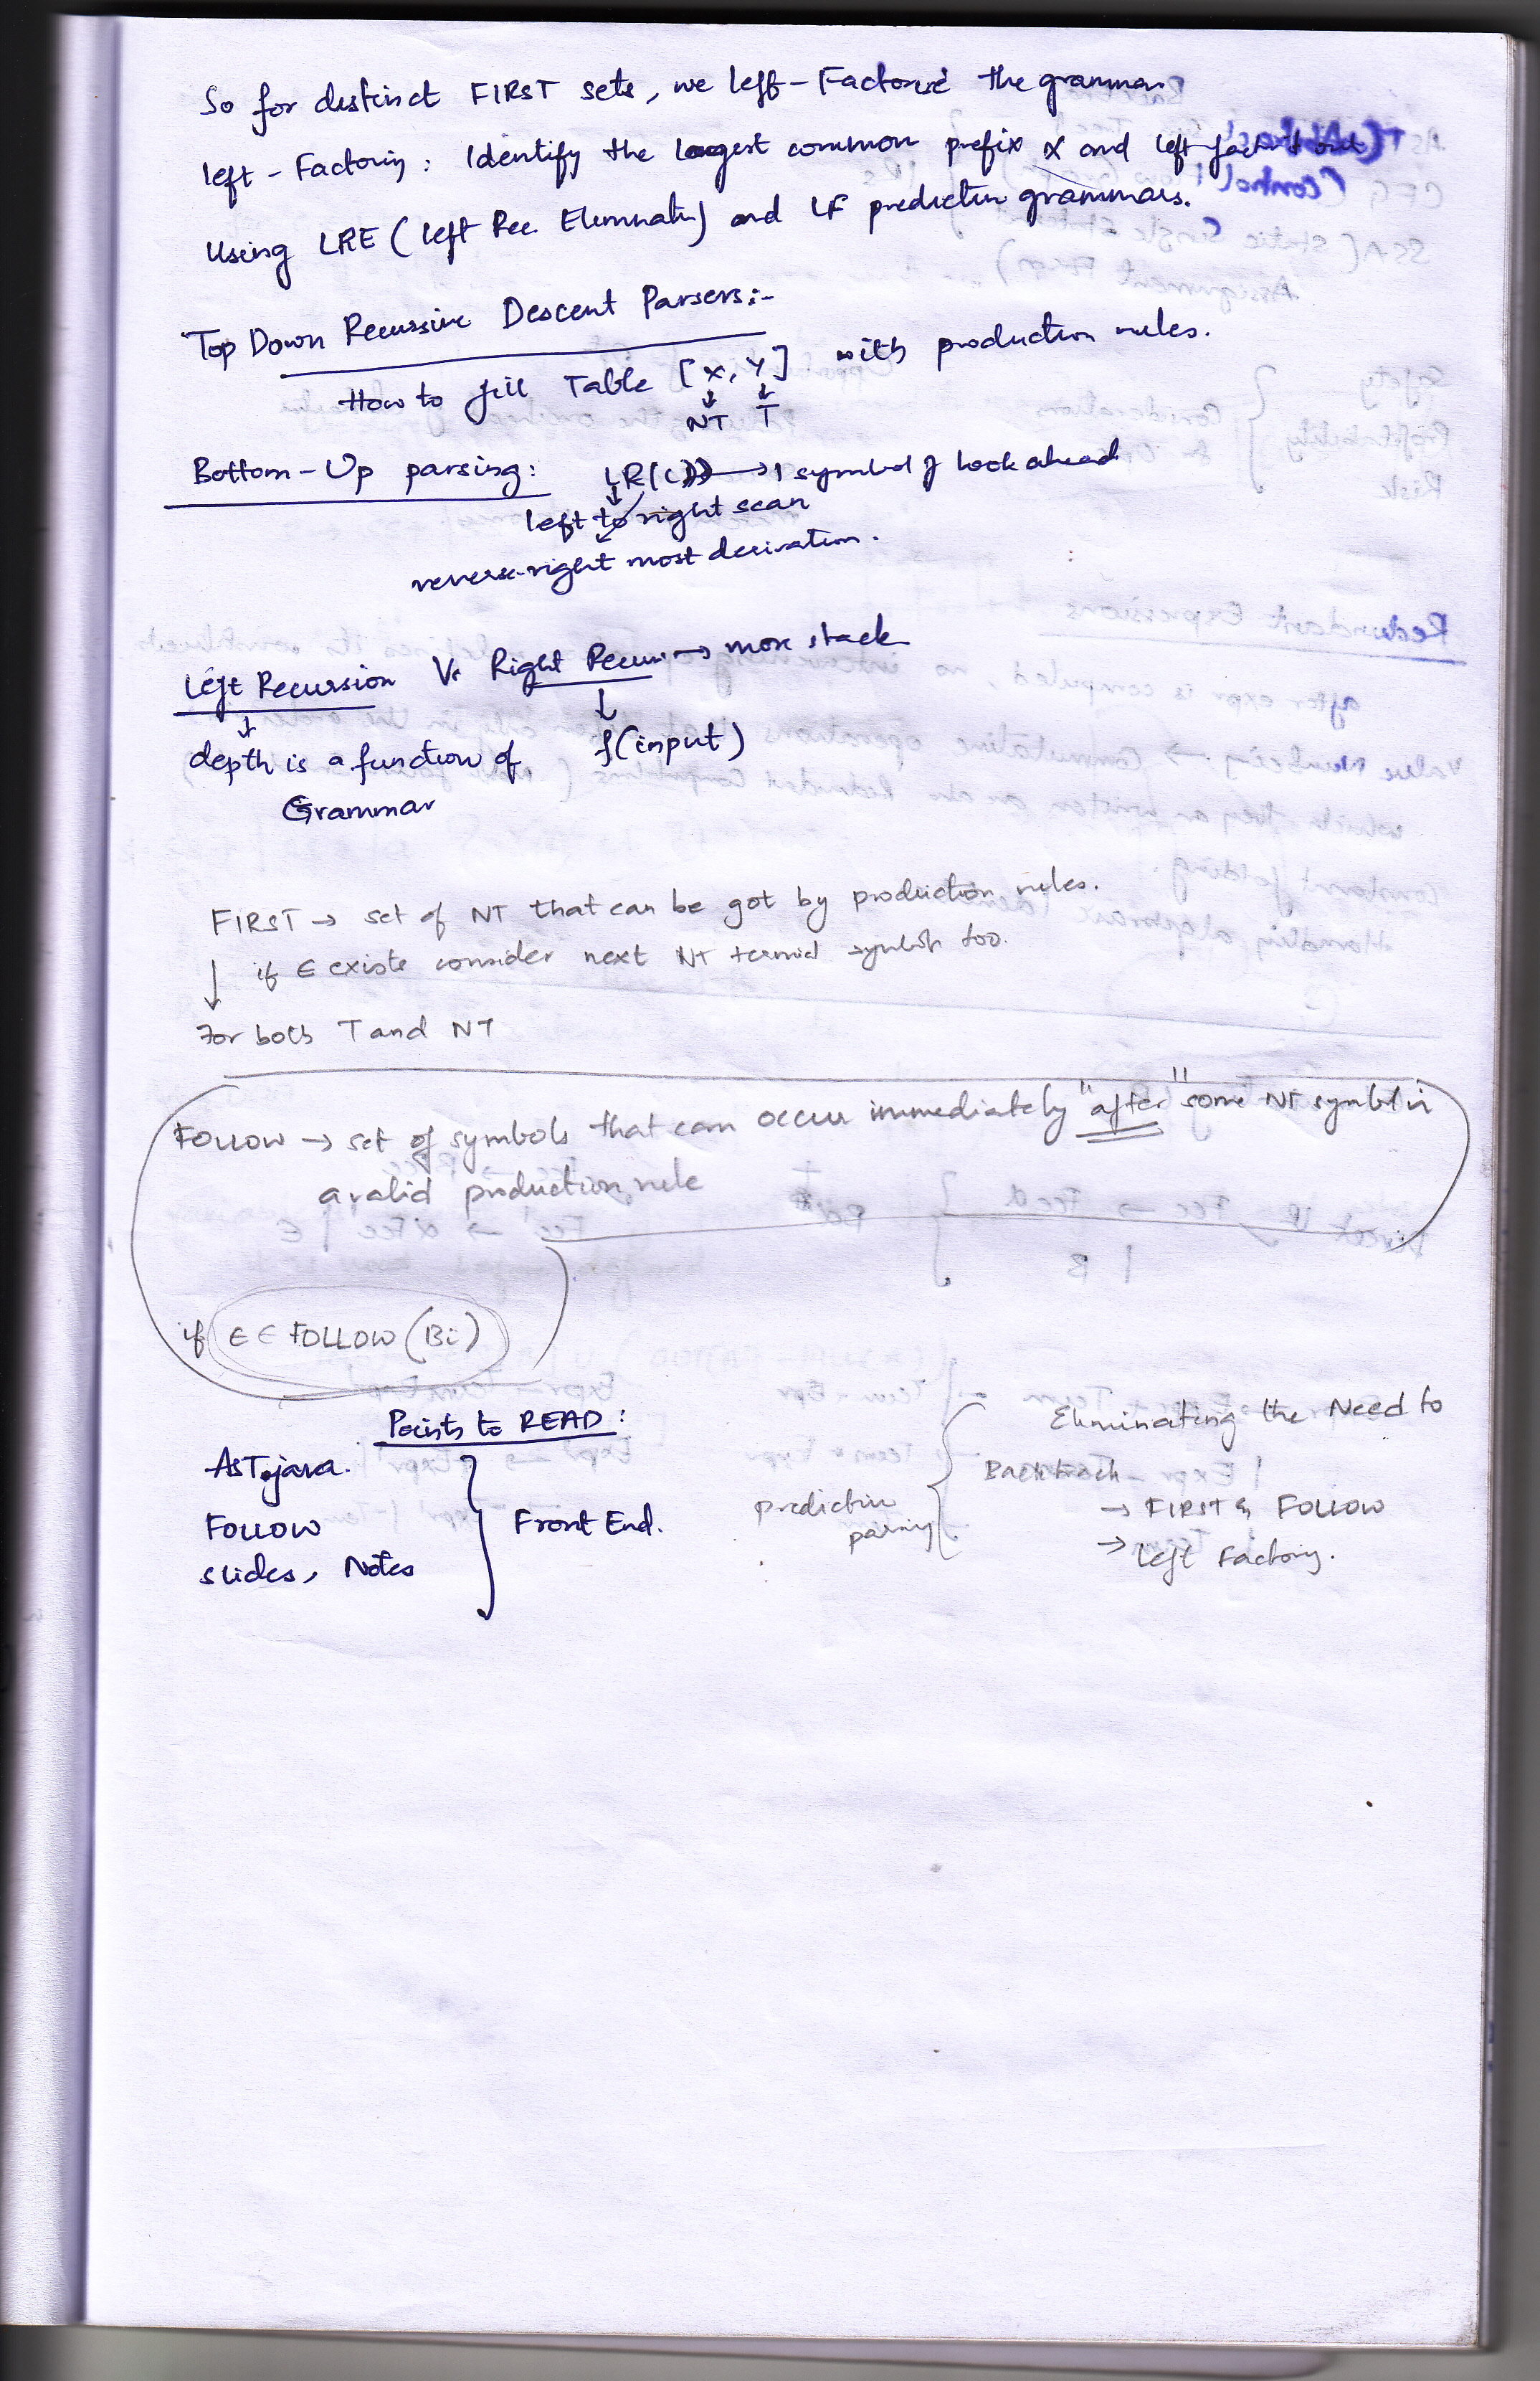 So for distinct FIRST sets, we left-Factorise the grammar
left-Factoring: Identify the longest common prefix α and left factor it out
Using LRE (left Rec. Elimnatn) and LF predictive grammars.
Top Down Recursive Descent Parsers:-
How to fill Table [X, Y] with production rules.
NT T
Bottom-Up parsing: LR(1) → 1 symbol of look ahead
left to right scan
reverse-right most derivation.
Left Recursion Vs Right Recur → more stack
depth is a function of f(input)
Grammar
FIRST → set of NT that can be got by production rules.
if ∈ exists consider next NT symbols too.
For both T and NT
FOLLOW → set of symbols that can occur immediately "after" some NT symbol in
a valid production rule
if ∈ ∈ FOLLOW (Bi)
Points to READ:
AST.java.
FOLLOW
slides, Notes
Front End.
predictive
parsing
Eliminating the Need to
Backtrack
→ FIRST & FOLLOW
→ Left Factoring.